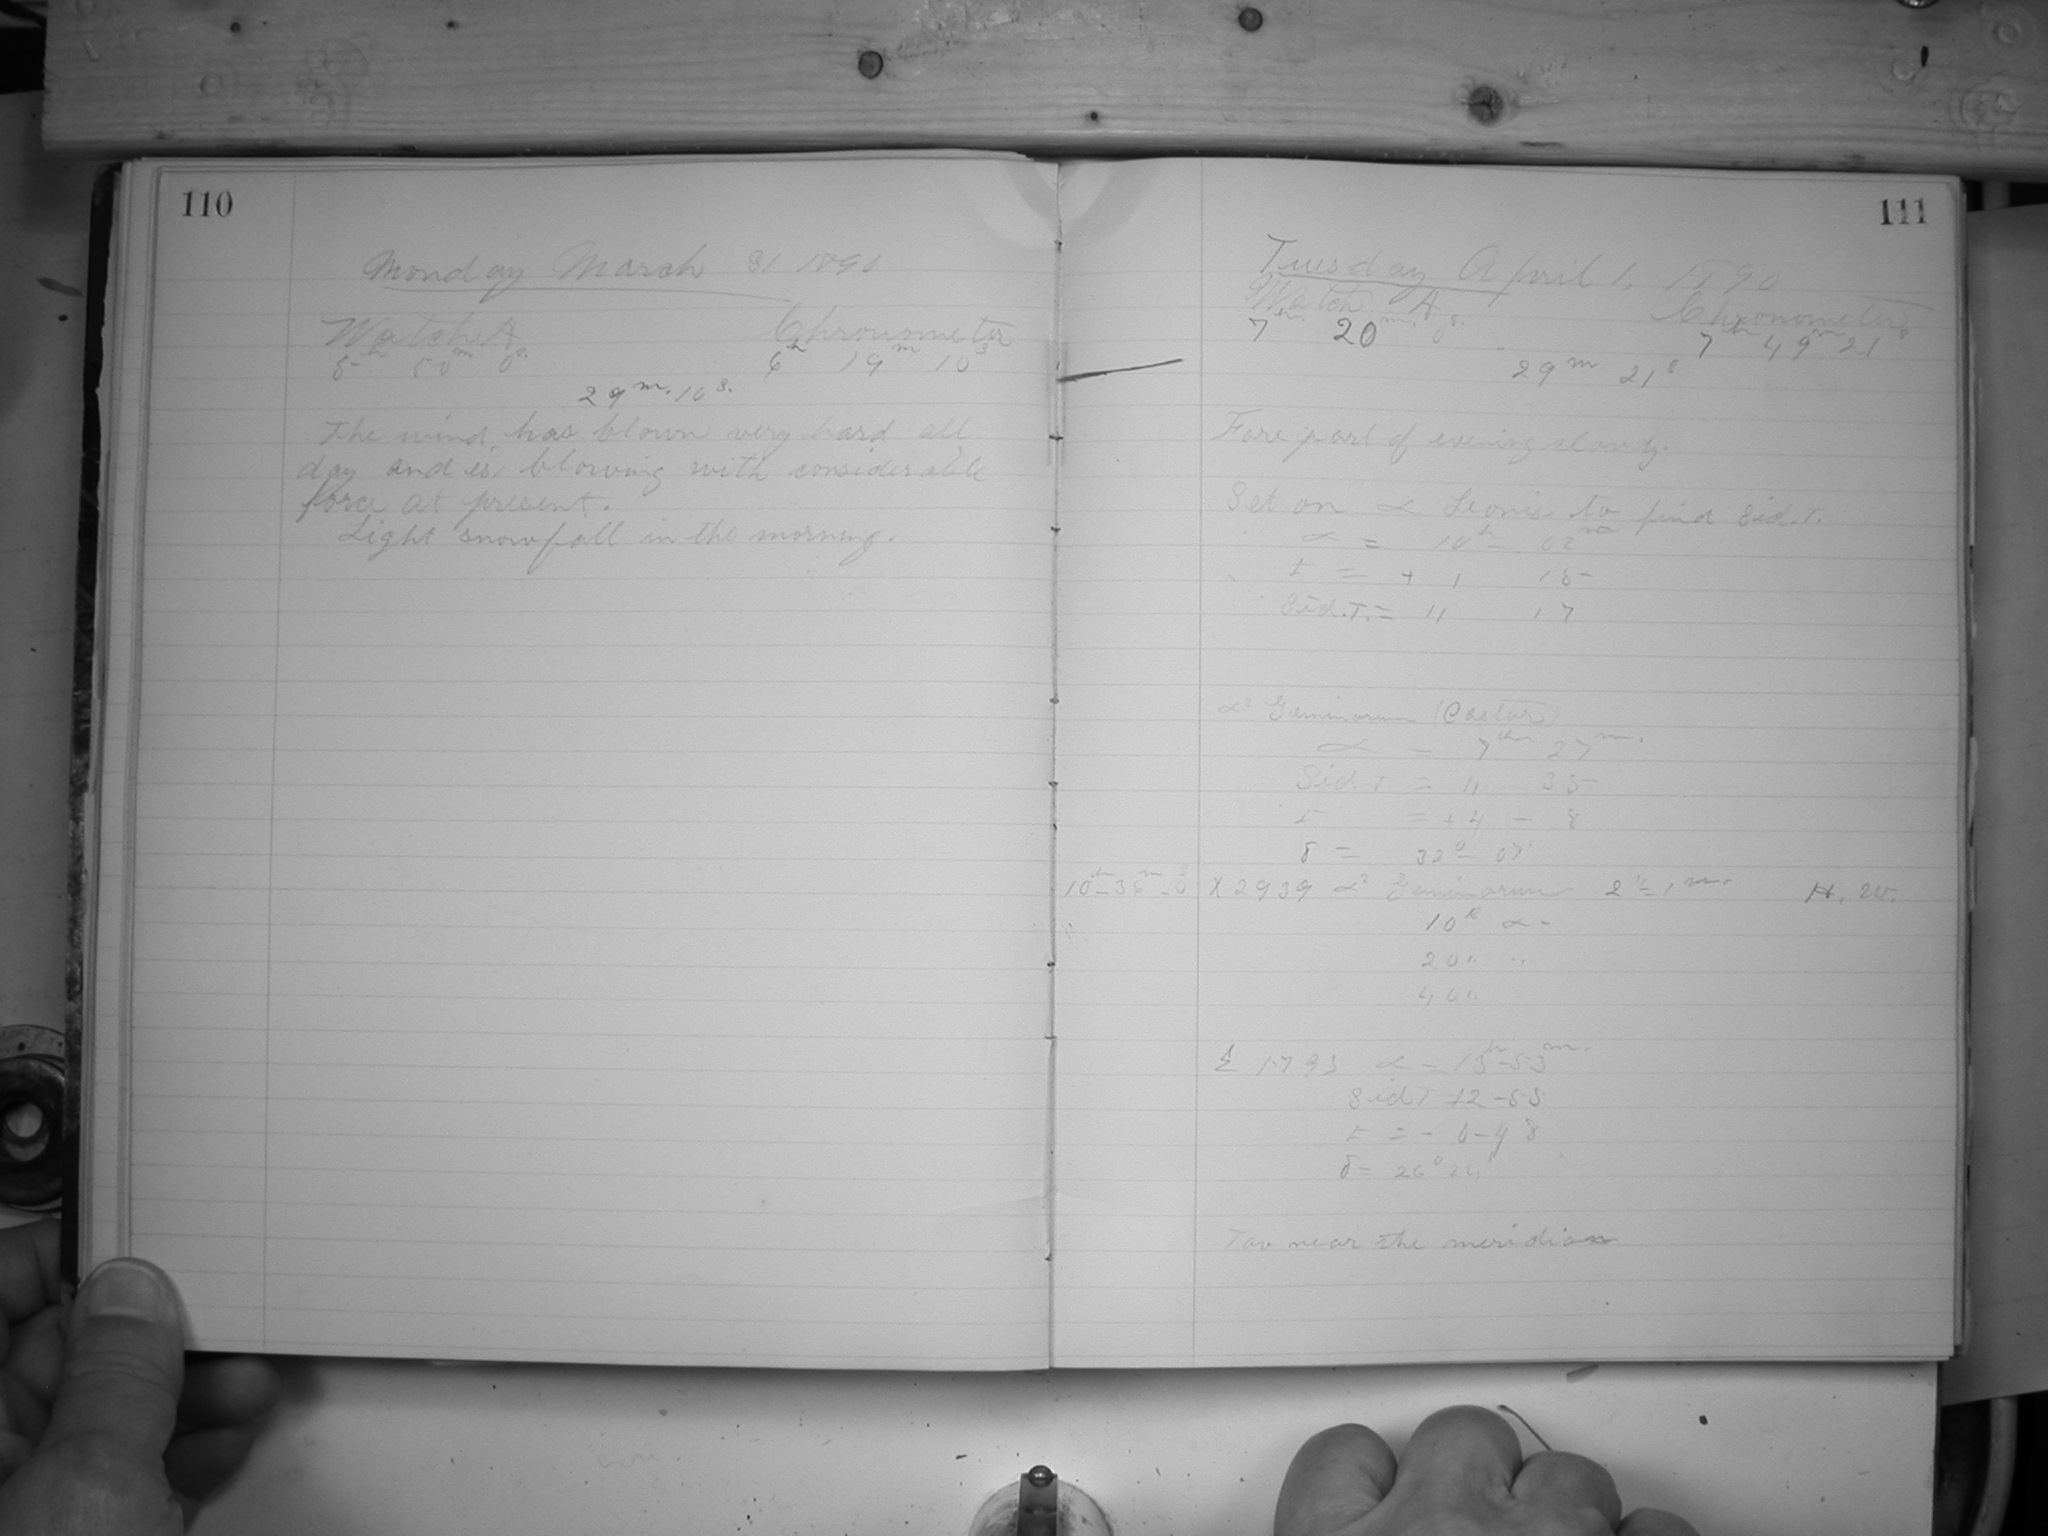 110
Monday March 31 1890
Watch A Chronometer
5h 50m 0s 6h 19m 10s
29m. 10s.
The wind has blown very hard all
day and is blowing with considerable
force at present.
Light snowfall in the morning.
111
Tuesday April 1, 1890
Watch A Chronometer
7h. 20m. 0s. 7h 49m 21s
29m 21s
Fore part of evening cloudy.
Set on α Leonis to find Sid. T.
α = 10h - 02m
t = + 1 15
Sid. T. = 11 17
α² Geminorum (Castor)
α = 7h 27m.
Sid T = 11 35
t = + 4 - 8
δ = 32° - 07'
10h-36m-0s X 2939 α² Geminorum 2h-1m. H. W.
10s α -
20 " "
40 "
Σ 1793 α - 13h-53m.
Sid T 12-55
t = - 0-48
δ = 26°
Too near the meridian